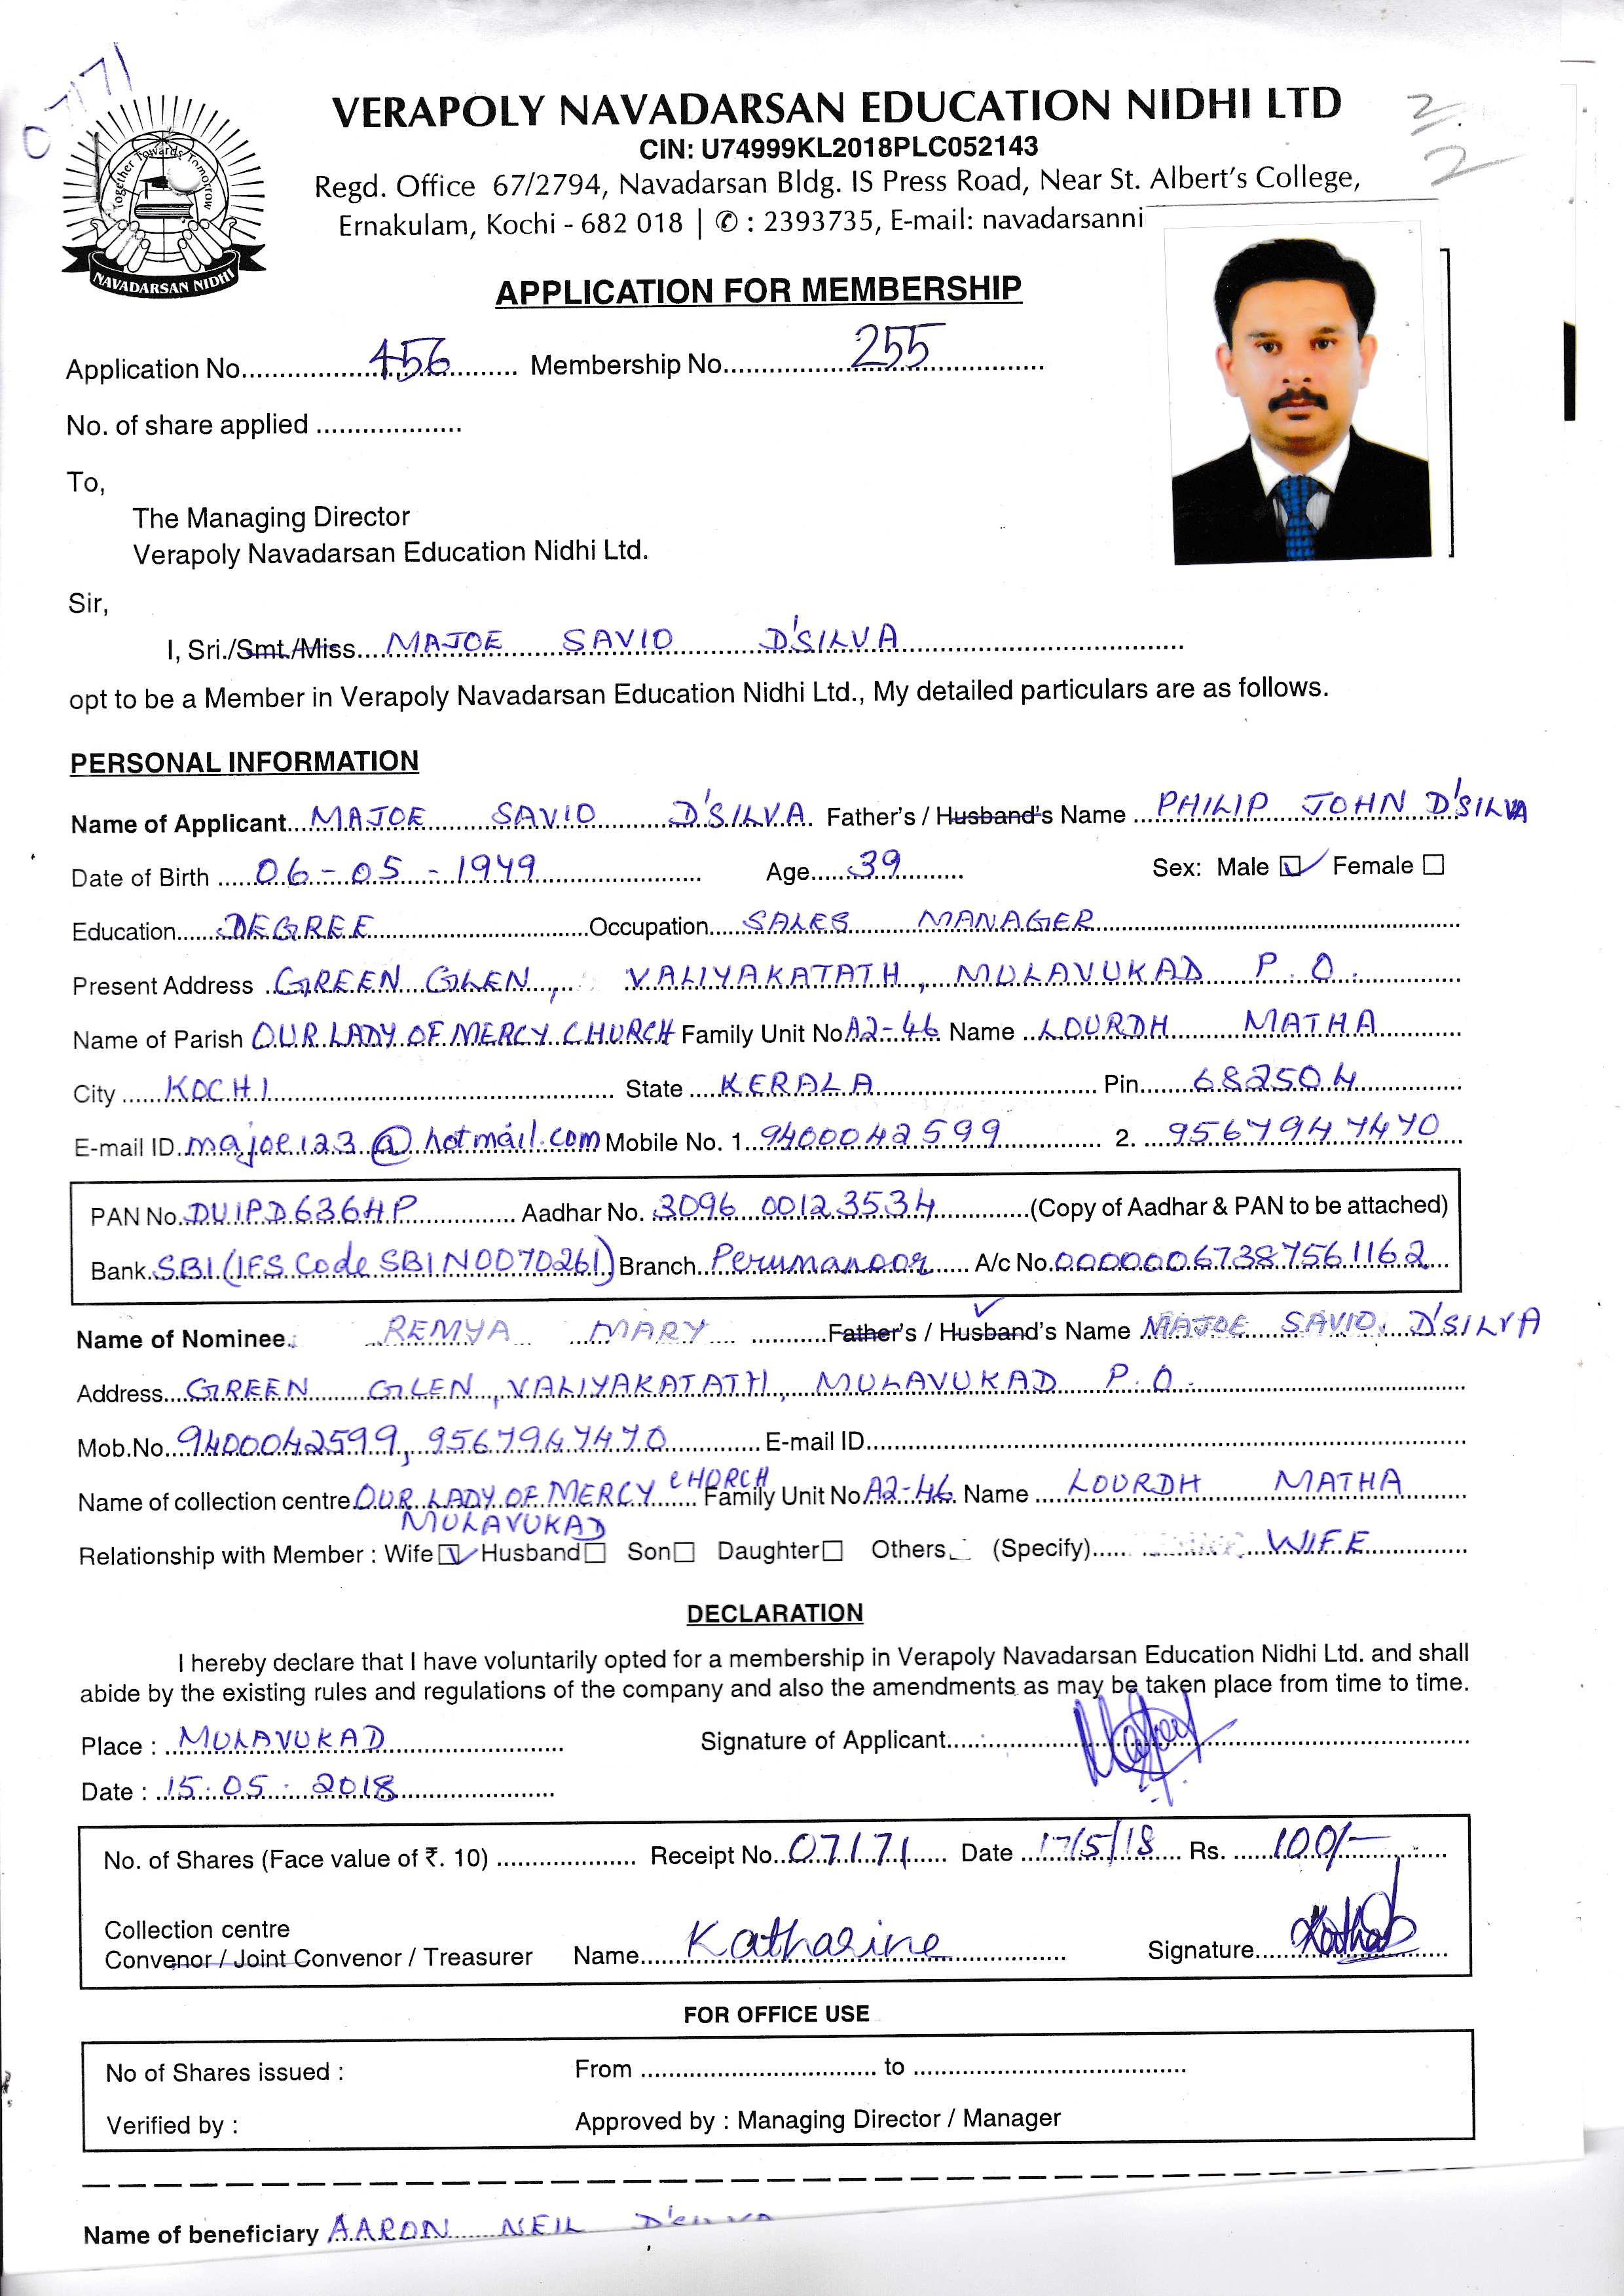 07171
VERAPOLY NAVADARSAN EDUCATION NIDHI LTD
CIN: U74999KL2018PLC052143
Regd. Office 67/2794, Navadarsan Bldg. IS Press Road, Near St. Albert's College,
Ernakulam, Kochi - 682 018 | ✆ : 2393735, E-mail: navadarsanni
Together Towards Tomorrow
NAVADARSAN NIDHI
2
APPLICATION FOR MEMBERSHIP
Application No. 456 Membership No. 255
No. of share applied ...................
To,
The Managing Director
Verapoly Navadarsan Education Nidhi Ltd.
Sir,
I, Sri./Smt./Miss MAJOE SAVIO D'SILVA
opt to be a Member in Verapoly Navadarsan Education Nidhi Ltd., My detailed particulars are as follows.
PERSONAL INFORMATION
Name of Applicant MAJOE SAVIO D'SILVA Father's / Husband's Name PHILIP JOHN D'SILVA
Date of Birth 06-05-1949 Age 39 Sex: Male ☑ Female ☐
Education DEGREE Occupation SALES MANAGER
Present Address GREEN GLEN, VALIYAKATATH, MULAVUKAD P.O.
Name of Parish OUR LADY OF MERCY CHURCH Family Unit No A2-46 Name LOURDH MATHA
City KOCHI State KERALA Pin 682504
E-mail ID majoe123@hotmail.com Mobile No. 1. 9400042599 2. 9567947470
PAN No. DUIPD6364P Aadhar No. 3096 0012 3534 (Copy of Aadhar & PAN to be attached)
Bank SBI (IFS Code SBIN0070261) Branch Perumanoor A/c No. 00000067387561162
Name of Nominee REMYA MARY Father's / Husband's Name MAJOE SAVIO D'SILVA
Address GREEN GLEN, VALIYAKATATH, MULAVUKAD P.O.
Mob.No. 9400042599, 9567947470 E-mail ID
Name of collection centre OUR LADY OF MERCY CHURCH Family Unit No A2-46 Name LOURDH MATHA
MULAVUKAD
Relationship with Member : Wife ☑ Husband ☐ Son ☐ Daughter ☐ Others (Specify) WIFE
DECLARATION
I hereby declare that I have voluntarily opted for a membership in Verapoly Navadarsan Education Nidhi Ltd. and shall
abide by the existing rules and regulations of the company and also the amendments as may be taken place from time to time.
Place : MULAVUKAD Signature of Applicant
Date : 15.05.2018
No. of Shares (Face value of ₹. 10) Receipt No. 07171 Date 17/5/18 Rs. 100/-
Collection centre
Convenor / Joint Convenor / Treasurer Name Katharine Signature
FOR OFFICE USE
No of Shares issued : From to
Verified by : Approved by : Managing Director / Manager
Name of beneficiary AARON NEIL D'SILVA